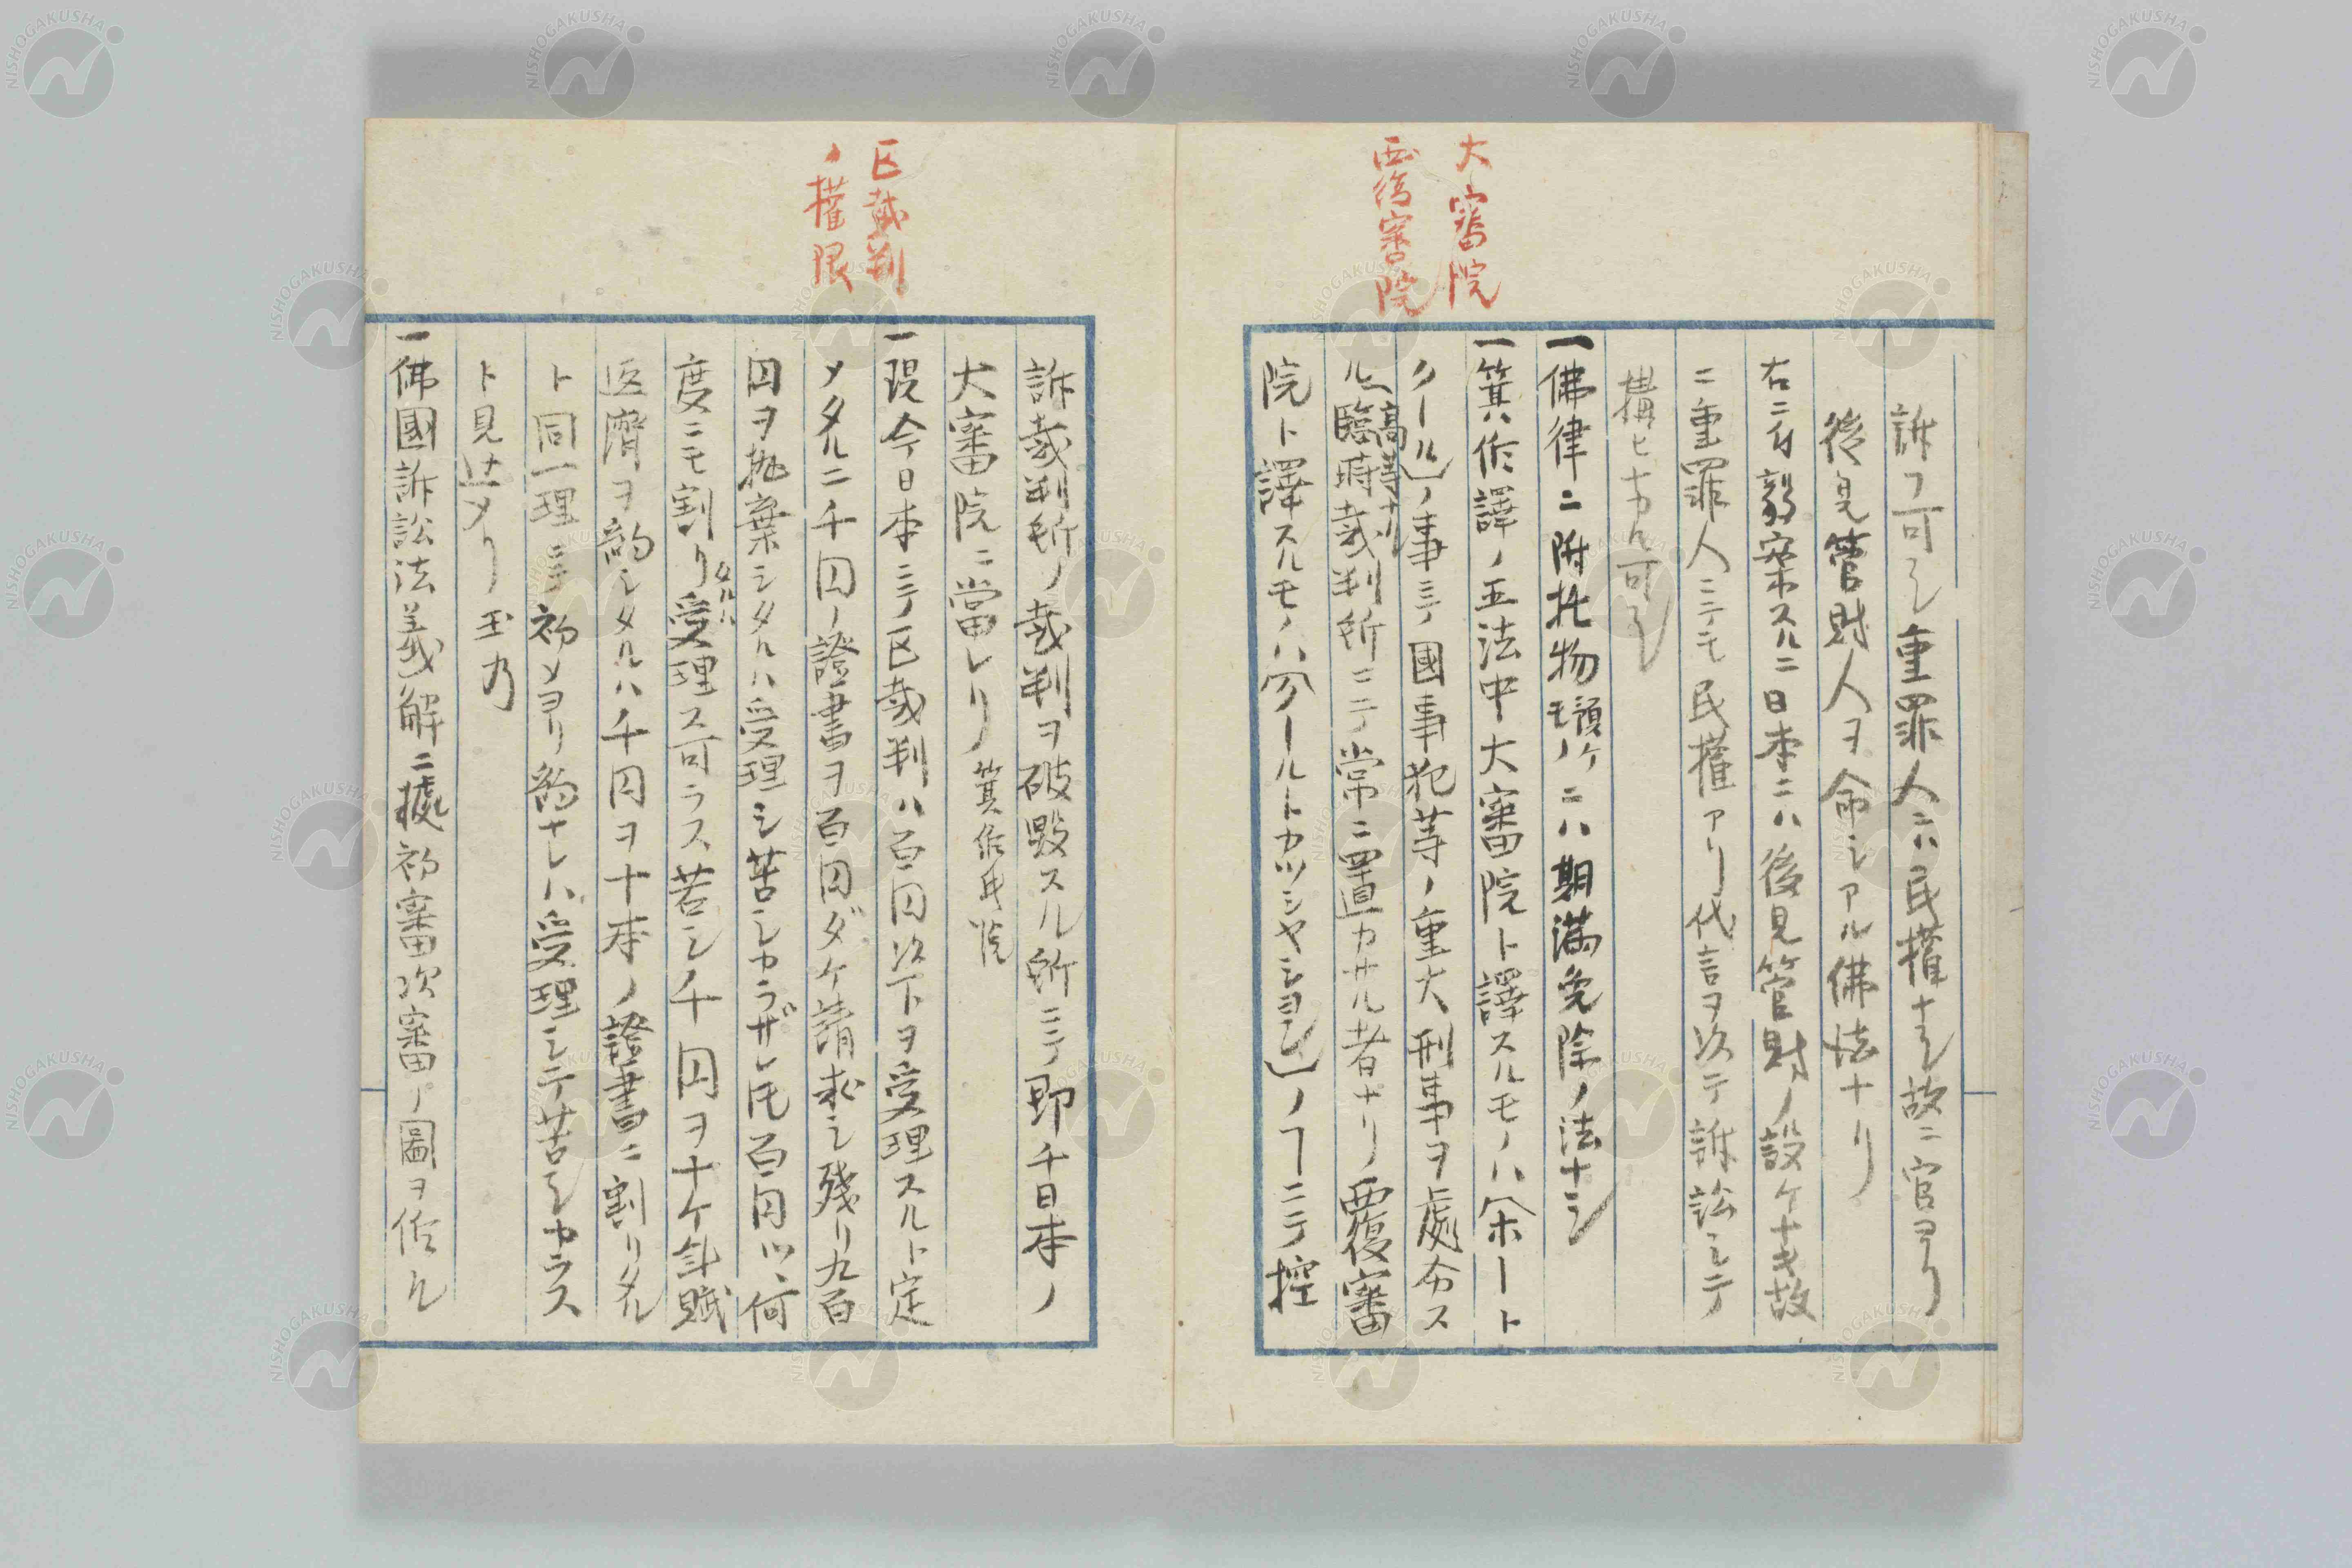 大審院
覆審院
訴フ可シ重罪人ニハ民権ナシ故ニ官ヨリ
後見管財人ヲ命シアル佛法ナリ
右ニ付勘案スルニ日本ニハ後見管財ノ設ケナキ故
ニ重罪人ニテモ民権アリ代言ヲ以テ訴訟シテ
構ヒナカル可シ
一佛律ニ附托物預ケモノニハ期満免除ノ法ナシ
一箕作譯ノ五法中大審院ト譯スルモノハ「ホート
クール」ノ事ニテ國事犯等ノ重大刑事ヲ處分ス
ル高等ナル臨時裁判所ニテ常ニ置カサル者ナリ覆審
院ト譯スルモノハ「クールトカツシヤシヨン」ノ ニテ控
区裁判
ノ権限
訴裁判所ノ裁判ヲ破毀スル所ニテ即チ日本ノ
大審院ニ當レリ 箕作氏説
一現今日本ニテ区裁判ハ百円以下ヲ受理スルト定
メタルニ千円ノ證書ヲ百円ダケ請求シ残リ九百
円ヲ抛棄シタルハ受理シ苦シカラザレ𪜈百円ツヽ何
度ニモ割リタルハ受理ス可ラス若シ千円ヲ十ケ年賦
返濟ヲ約シタルハ千円ヲ十本ノ證書ニ割リタル
ト同一理ニテ初メヨリ約ナレハ受理シテ苦シカラス
ト見込メリ 玉乃
一佛國訴訟法義解ニ據初審次審ノ圖ヲ作ル
NISHOGAKUSHA